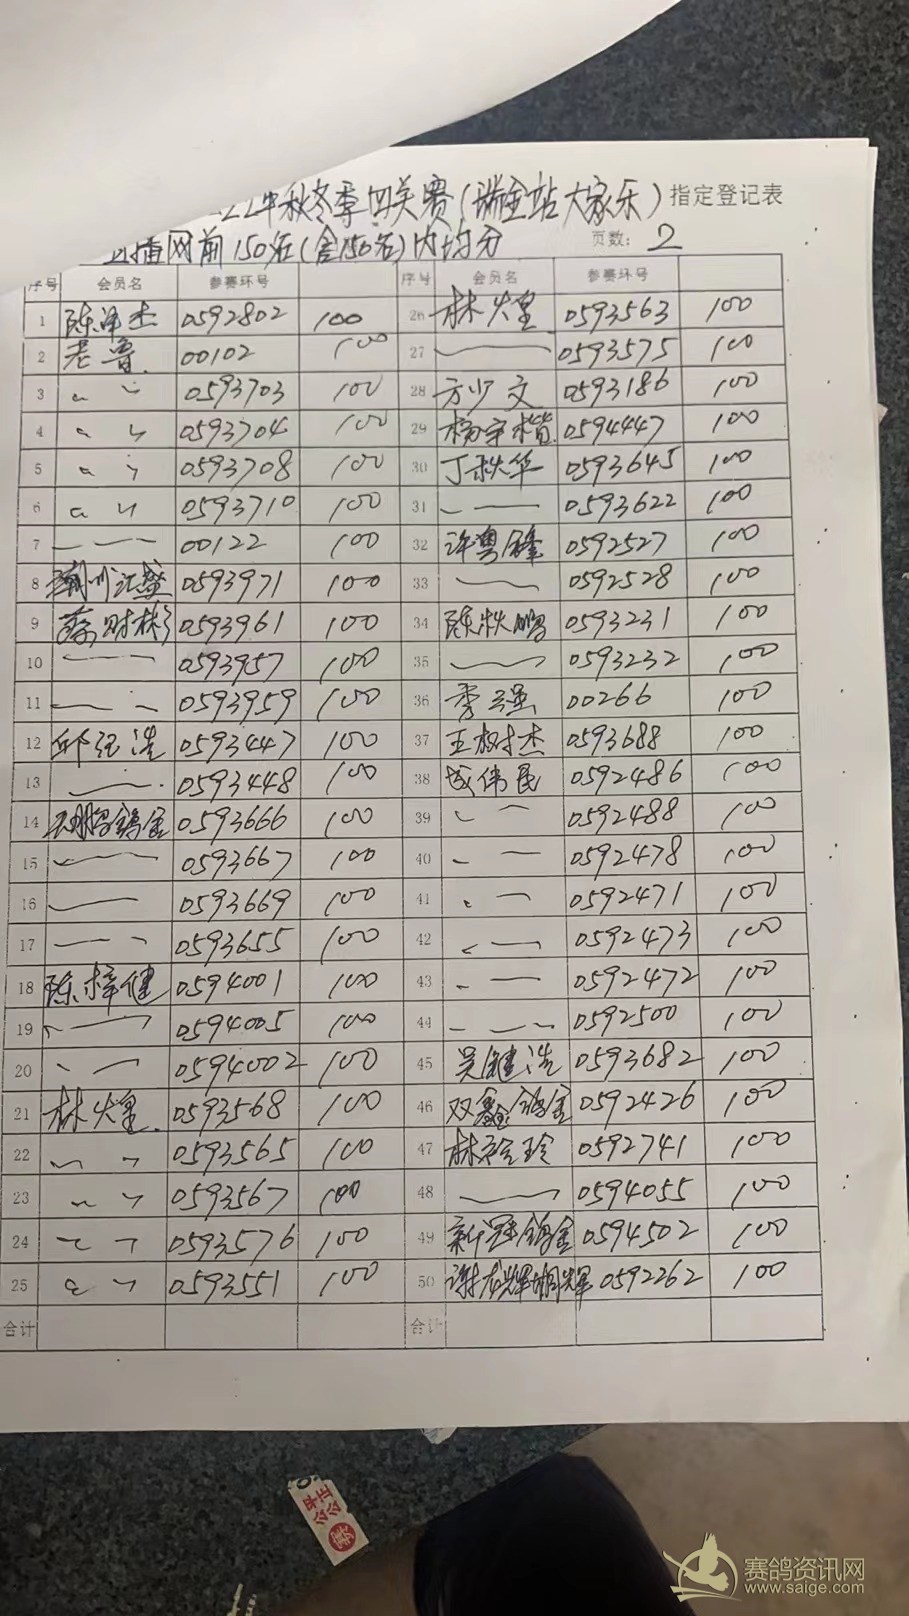 22年秋冬季四关赛(瑞金站大家乐)指定登记表
插网前150名(含150名)内均分 页数: 2
序号 会员名 参赛环号 序号 会员名 参赛环号
1 陈泽杰 0592802 100 26 林火皇 0593563 100
2 老鲁 00102 100 27 0593575 100
3 〃 0593703 100 28 方少文 0593186 100
4 〃 0593704 100 29 杨宇楷 0594447 100
5 〃 0593708 100 30 丁秋华 0593645 100
6 〃 0593710 100 31 0593622 100
7 00122 100 32 许粤锋 0592527 100
8 0593971 100 33 0592528 100
9 蔡财彬 0593961 100 34 陈秋鹏 0593231 100
10 0593957 100 35 0593232 100
11 0593959 100 36 00266 100
12 0593447 100 37 王树杰 0593688 100
13 0593448 100 38 伟民 0592486 100
14 鸽舍 0593666 100 39 0592488 100
15 0593667 100 40 0592478 100
16 0593669 100 41 0592471 100
17 0593655 100 42 0592473 100
18 陈梓健 0594001 100 43 0592472 100
19 0594005 100 44 0592500 100
20 0594002 100 45 吴健浩 0593682 100
21 林火皇 0593568 100 46 双鑫鸽舍 0592426 100
22 〃 0593565 100 47 林 玲 0592741 100
23 〃 0593567 100 48 0594055 100
24 〃 0593576 100 49 新冠鸽舍 0594502 100
25 〃 0593551 100 50 0592262 100
合计 合计
公平公正
赛鸽资讯网
www.saige.com